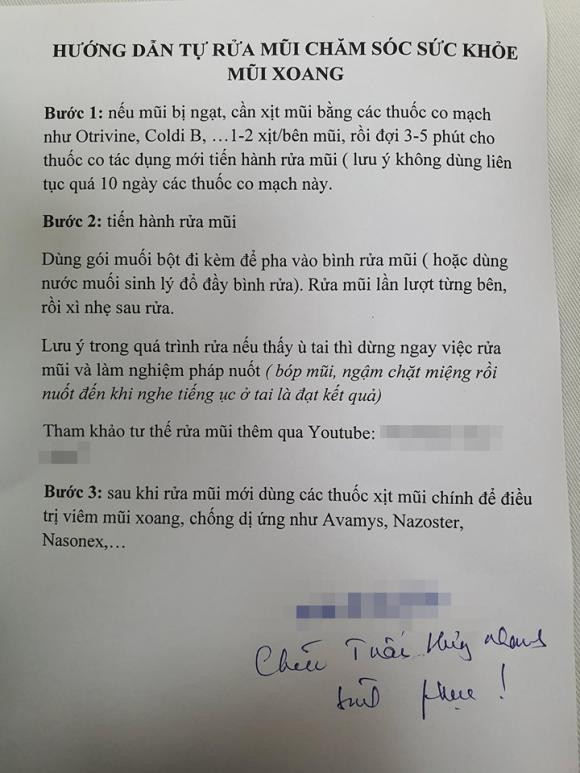 HƯỚNG DẪN TỰ RỬA MŨI CHĂM SÓC SỨC KHỎE
MŨI XOANG
Bước 1: nếu mũi bị ngạt, cần xịt mũi bằng các thuốc co mạch
như Otrivine, Coldi B, …1-2 xịt/bên mũi, rồi đợi 3-5 phút cho
thuốc co tác dụng mới tiến hành rửa mũi ( lưu ý không dùng liên
tục quá 10 ngày các thuốc co mạch này.
Bước 2: tiến hành rửa mũi
Dùng gói muối bột đi kèm để pha vào bình rửa mũi ( hoặc dùng
nước muối sinh lý đổ đầy bình rửa). Rửa mũi lần lượt từng bên,
rồi xì nhẹ sau rửa.
Lưu ý trong quá trình rửa nếu thấy ù tai thì dừng ngay việc rửa
mũi và làm nghiệm pháp nuốt ( bóp mũi, ngậm chặt miệng rồi
nuốt đến khi nghe tiếng ục ở tai là đạt kết quả)
Tham khảo tư thế rửa mũi thêm qua Youtube:
Bước 3: sau khi rửa mũi mới dùng các thuốc xịt mũi chính để điều
trị viêm mũi xoang, chống dị ứng như Avamys, Nazoster,
Nasonex,…